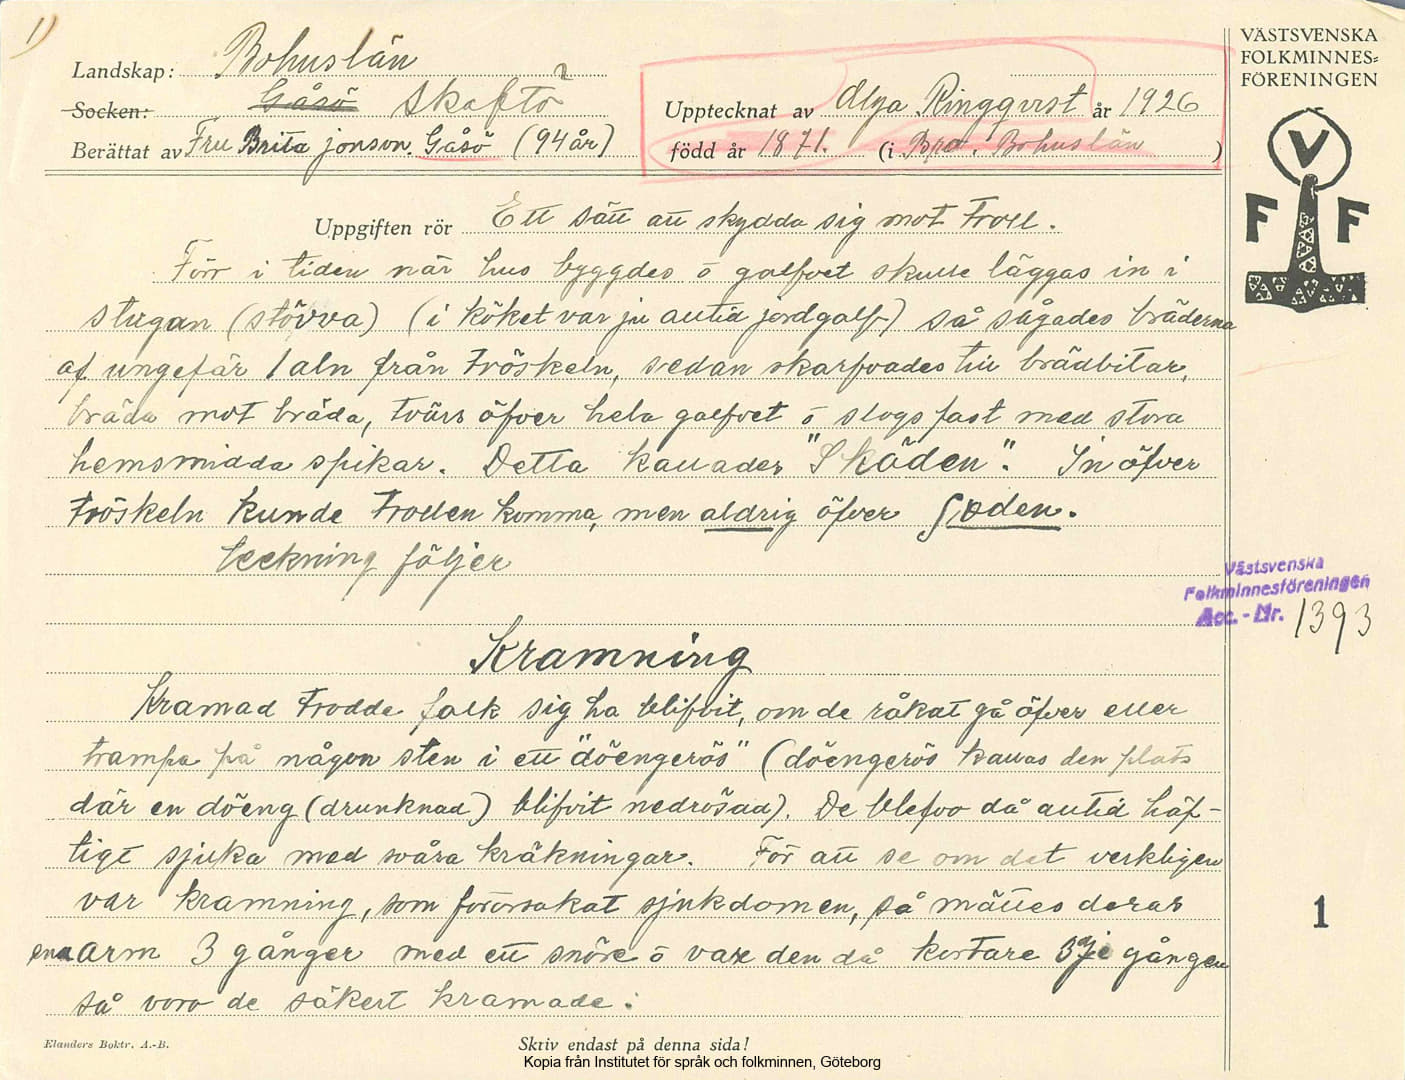 1)
VÄSTSVENSKA
FOLKMINNES=
FÖRENINGEN
Landskap: Bohuslän
Socken: Gåsö Skaftö
Upptecknat av Olga Ringqvist år 1926
Berättat av Fru Brita jonson. Gåsö (94 år)
född år 1871. (i Bro. Bohuslän )
V
F F
Uppgiften rör Ett sätt att skydda sig mot Troll.
Förr i tiden när hus byggdes o golfvet skulle läggas in i
stugan (stövva) (i köket var ju alltid jordgolf) så sågades bräderna
af ungefär 1 aln från tröskeln, sedan skarfvades till brädbitar,
bräda mot bräda, tvärs öfver hela golfvet o slogs fast med stora
hemsmidda spikar. Detta kallades "Skäden". In öfver
tröskeln kunde Trollen komma, men aldrig öfver
Teckning följer
Västsvenska
Folkminnesföreningen
Acc. - Nr. 1393
Kramning
Kramad trodde folk sig ha blifvit, om de råkat gå öfver eller
trampa på någon sten i ett "döengerös" (döengerös kallas den plats
där en döeng (drunknad) blifvit nedrösad). De blefvo då alltid häf-
tigt sjuka med svåra kräkningar. För att se om det verkligen
var kramning, som förorsakat sjukdomen, så mättes deras
ena arm 3 gånger med ett snöre o var den då kortare 3dje gången
så voro de säkert kramade.
1
Elanders Boktr. A.-B.
Skriv endast på denna sida!
Kopia från Institutet för språk och folkminnen, Göteborg